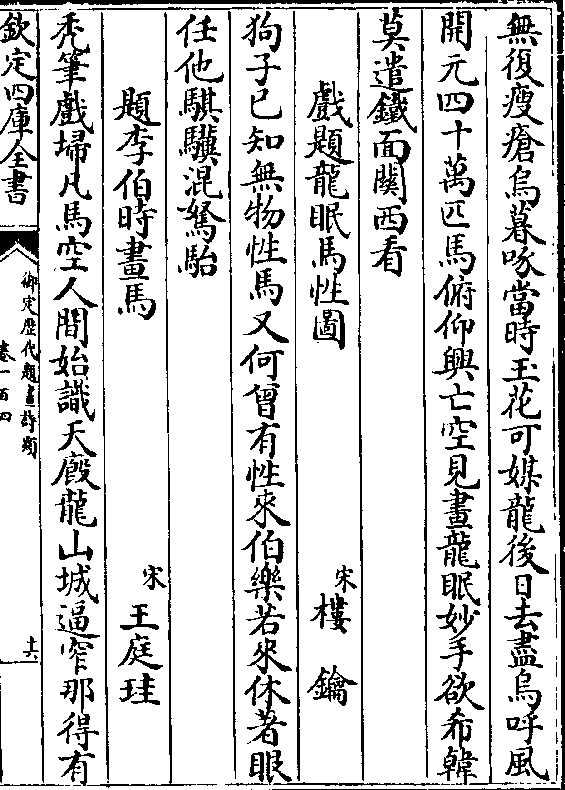 無復瘦瘡烏暮啄當時玉花可媒龍後日去盡烏呼風
開元四十萬匹馬俯仰興亡空見畫龍眠妙手欲希韓
莫遣鐵面關西看
戲題龍眠馬性圖
宋 樓鑰
狗子已知無物性馬又何曾有性來伯樂若來休著眼
任他騏驥混駑駘
題李伯時畫馬
宋 王庭珪
禿筆戲埽凡馬空人間始識天廄龍山城逼窄那得有
欽定四庫全書
御定歷代題畫詩類
卷一百四
十六